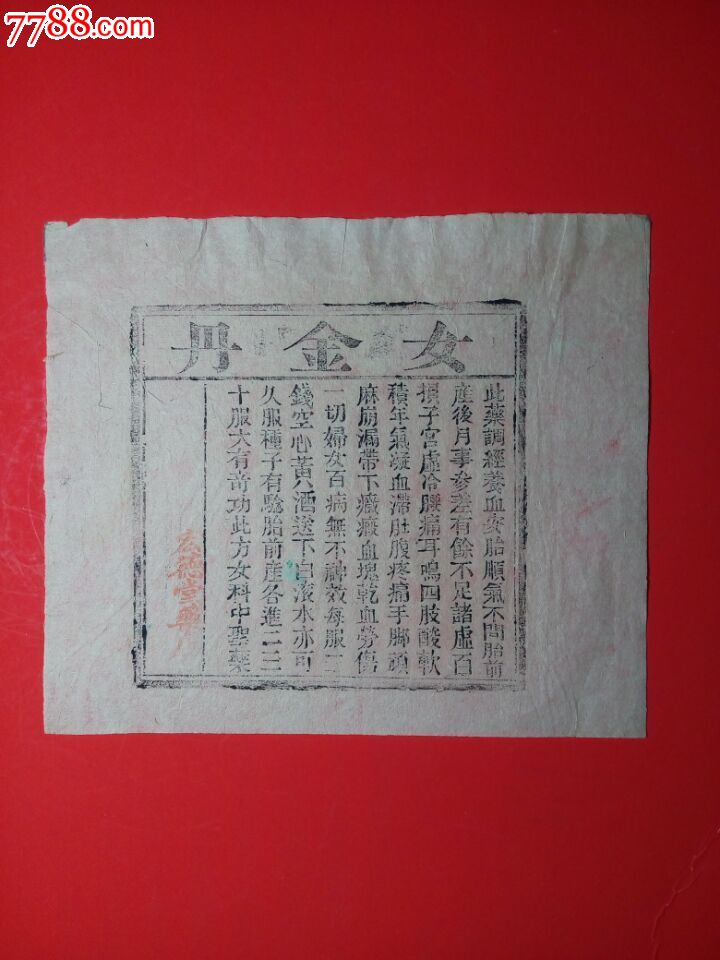 7788.com
女金丹
此藥調經養血安胎順氣不問胎前
產後月事參差有餘不足諸虛百
損子宮虛冷腰痛耳鳴四肢酸軟
積年氣凝血滯肚腹疼痛手腳頑
麻崩漏帶下癥瘕血塊乾血勞傷
一切婦女百病無不神效每服二
錢空心黃酒送下白滾水亦可
久服種子有驗胎前產各進二三
十服大有奇功此方女科中聖藥
德堂藥